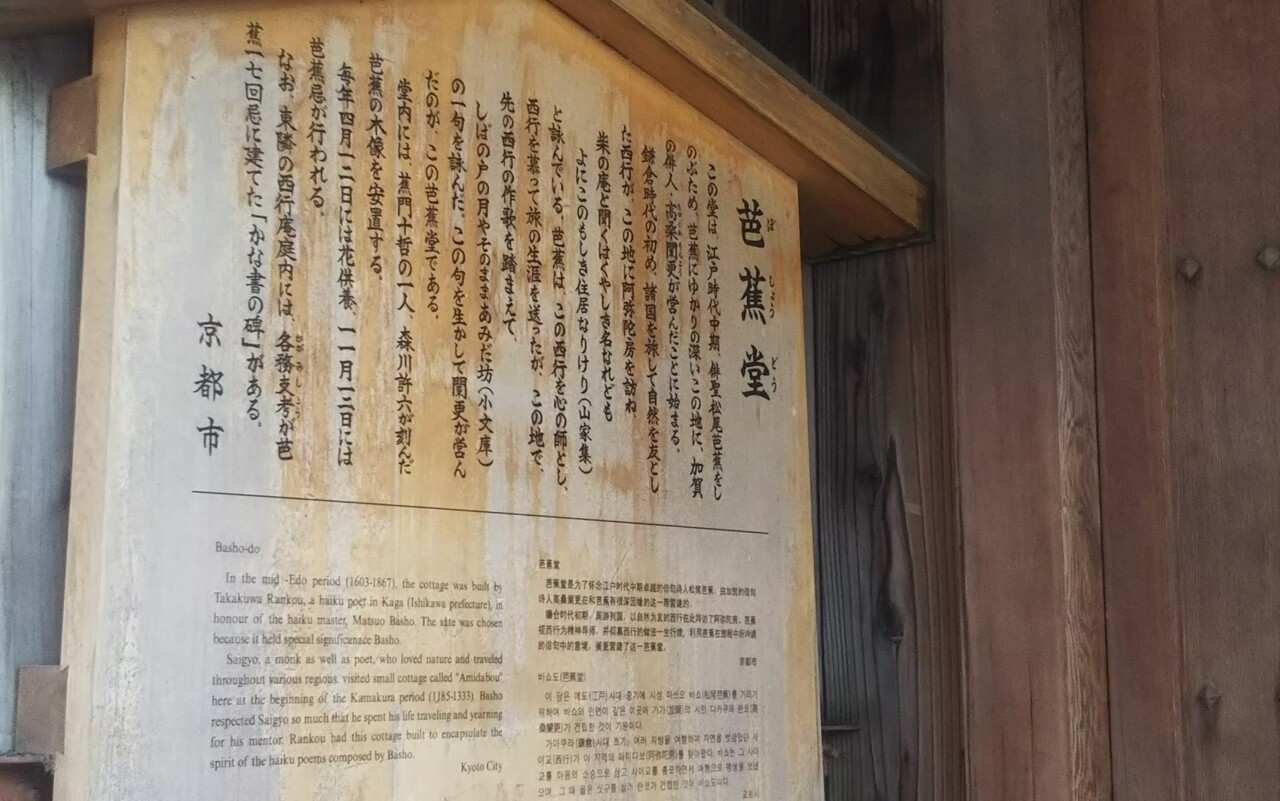 芭蕉堂
この堂は、江戸時代中期、俳聖松尾芭蕉をし
のぶため、芭蕉にゆかりの深いこの地に、加賀
の俳人・高桑闌更が営んだことに始まる。
鎌倉時代の初め、諸国を旅して自然を友とし
た西行が、この地に阿弥陀房を訪ね、
柴の庵と聞くはくやしき名なれども
よにこのもしき住居なりけり(山家集)
と詠んでいる。芭蕉は、この西行を心の師とし、
西行を慕って旅の生涯を送ったが、この地で、
先の西行の作歌を踏まえて、
しばの戸の月やそのままあみだ坊(小文庫)
の一句を詠んだ。この句を生かして闌更が営ん
だのが、この芭蕉堂である。
堂内には、蕉門十哲の一人、森川許六が刻んだ
芭蕉の木像を安置する。
毎年四月一二日には花供養、一一月一二日には
芭蕉忌が行われる。
なお、東隣の西行庵庭内には、各務支考が芭
蕉一七回忌に建てた「かな書の碑」がある。
京都市
Basho-do
In the mid -Edo period (1603-1867), the cottage was built by
Takakuwa Rankou, a haiku poet in Kaga (Ishikawa prefecture), in
honour of the haiku master, Matsuo Basho. The site was chosen
because it held special significanace Basho.
Saigyo, a monk as well as poet, who loved nature and traveled
throughout various regions, visited small cottage called "Amidabou"
here at the beginning of the Kamakura period (1185-1333). Basho
respected Saigyo so much that he spent his life traveling and yearning
for his mentor. Rankou had this cottage built to encapsulate the
spirit of the haiku poems composed by Basho.
Kyoto City
芭蕉堂
芭蕉堂是为了怀念江户时代中期卓越的俳句诗人松尾芭蕉，由加贺的俳句
诗人高桑阑更在和芭蕉有很深因缘的这一带营建的。
镰仓时代初期，周游列国，以自然为友的西行在此拜访了阿弥陀房。芭蕉
视西行为精神导师，并仰慕西行的做法一生行旅，利用芭蕉在旅程中所吟诵
的俳句中的意境，阑更营建了这一芭蕉堂。
京都市
바쇼도(芭蕉堂)
이 당은 에도(江戸)시대 중기에 시성 마쓰오 바쇼(松尾芭蕉)를 기리기
위하여 바쇼와 인연이 깊은 이곳에 가가(加賀)의 시인 다카쿠와 란코(高
桑闌更)가 건립한 것이 기원이다.
가마쿠라(鎌倉)시대 초기, 여러 지방을 여행하며 자연을 벗삼았던 사
이교(西行)가 이 지역의 아미다보(阿弥陀房)를 찾아왔다. 바쇼는 그 사이
교를 마음의 스승으로 삼고 사이교를 흠모하면서 여행으로 평생을 보냈
으며, 그 때 읊은 싯구를 살려 란코가 건립한 것이 바쇼도이다.
교토시